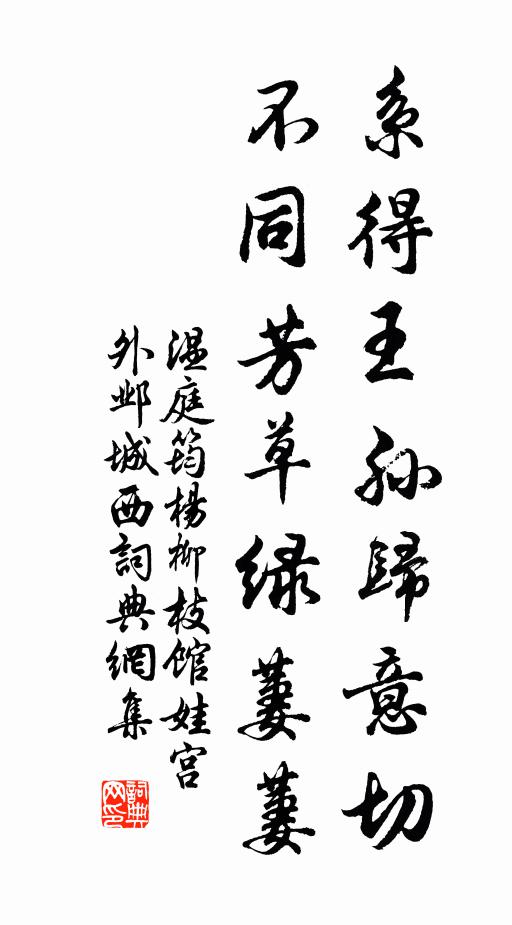 系得王孙歸意切
不同芳草绿萋萋
温庭筠楊柳枝館娃宫
外邺城西詞典網集
詞典
网印